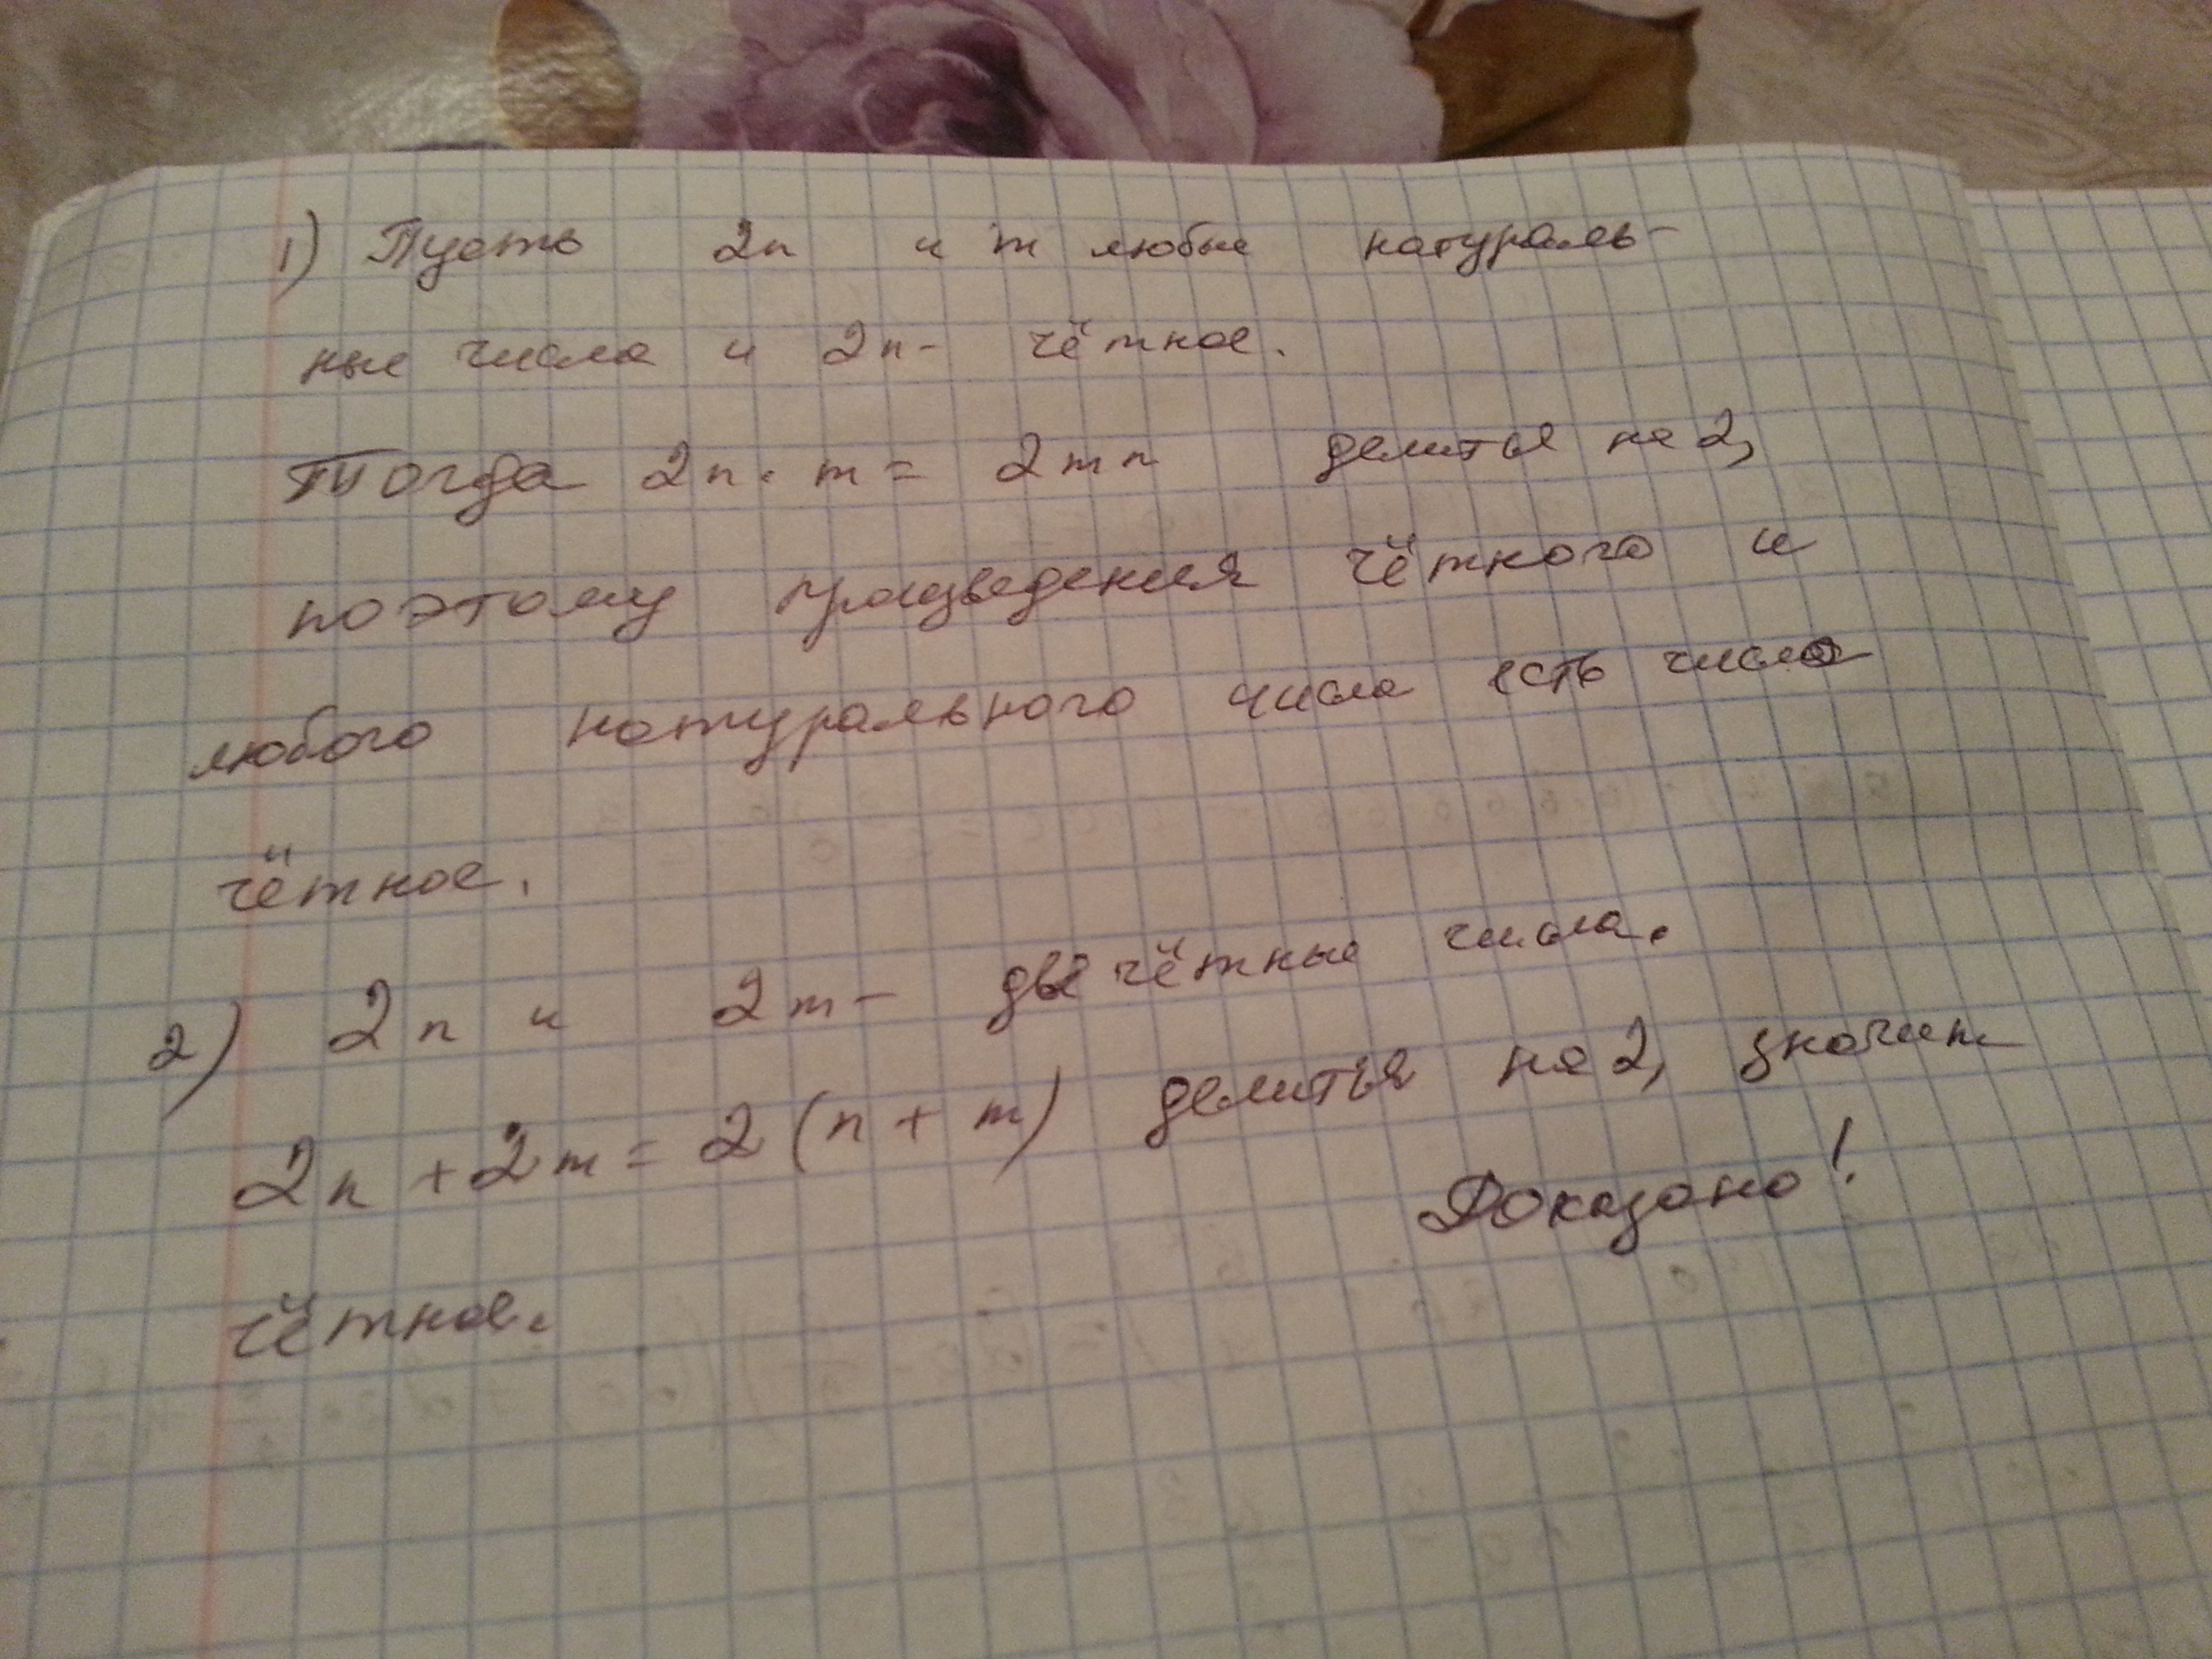 1) Пусть 2n и m любые натураль-
ные числа и 2n- чётное.
Тогда 2n · m = 2mn делится на 2,
поэтому произведения чётного и
любого натурального числа есть число
чётное.
2) 2n и 2m- две чётные числа.
2n + 2m = 2(n + m) делится на 2, значит
Доказано!
чётное.